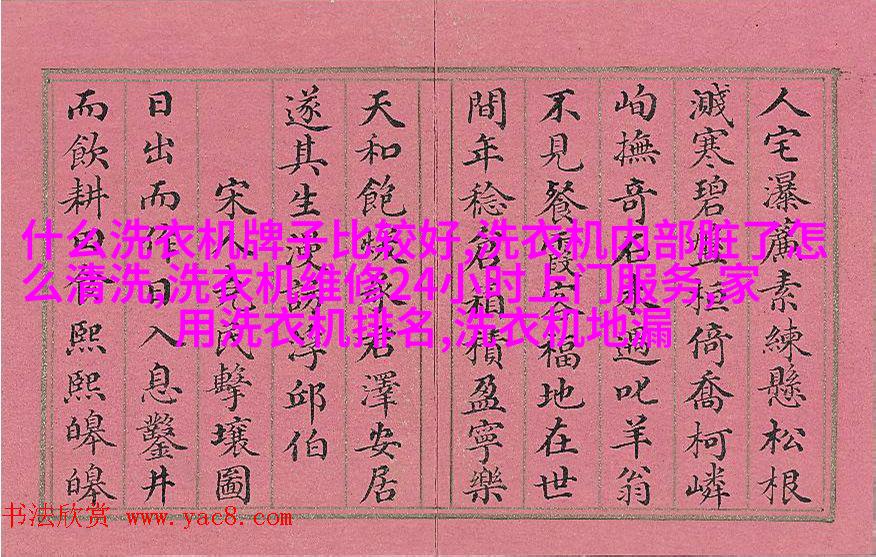 人宅瀑素練懸松根
濺寒碧盤桓倚喬柯嶙
峋撫奇石永遇叱羊翁
不見餐霞客福地在世
間年稔倉箱積盈寧樂
天和飽煖承君澤安居
遂其生漫謌浮邱伯
宋人民擊壤圖
日出而作日入息鑿井
而飲耕田食熙熙皞皞
什么洗衣机牌子比较好,洗衣机内部脏了怎
么清洗,洗衣机维修24小时上门服务,家
用洗衣机排名,洗衣机地漏
书法欣赏 www.yac8.com